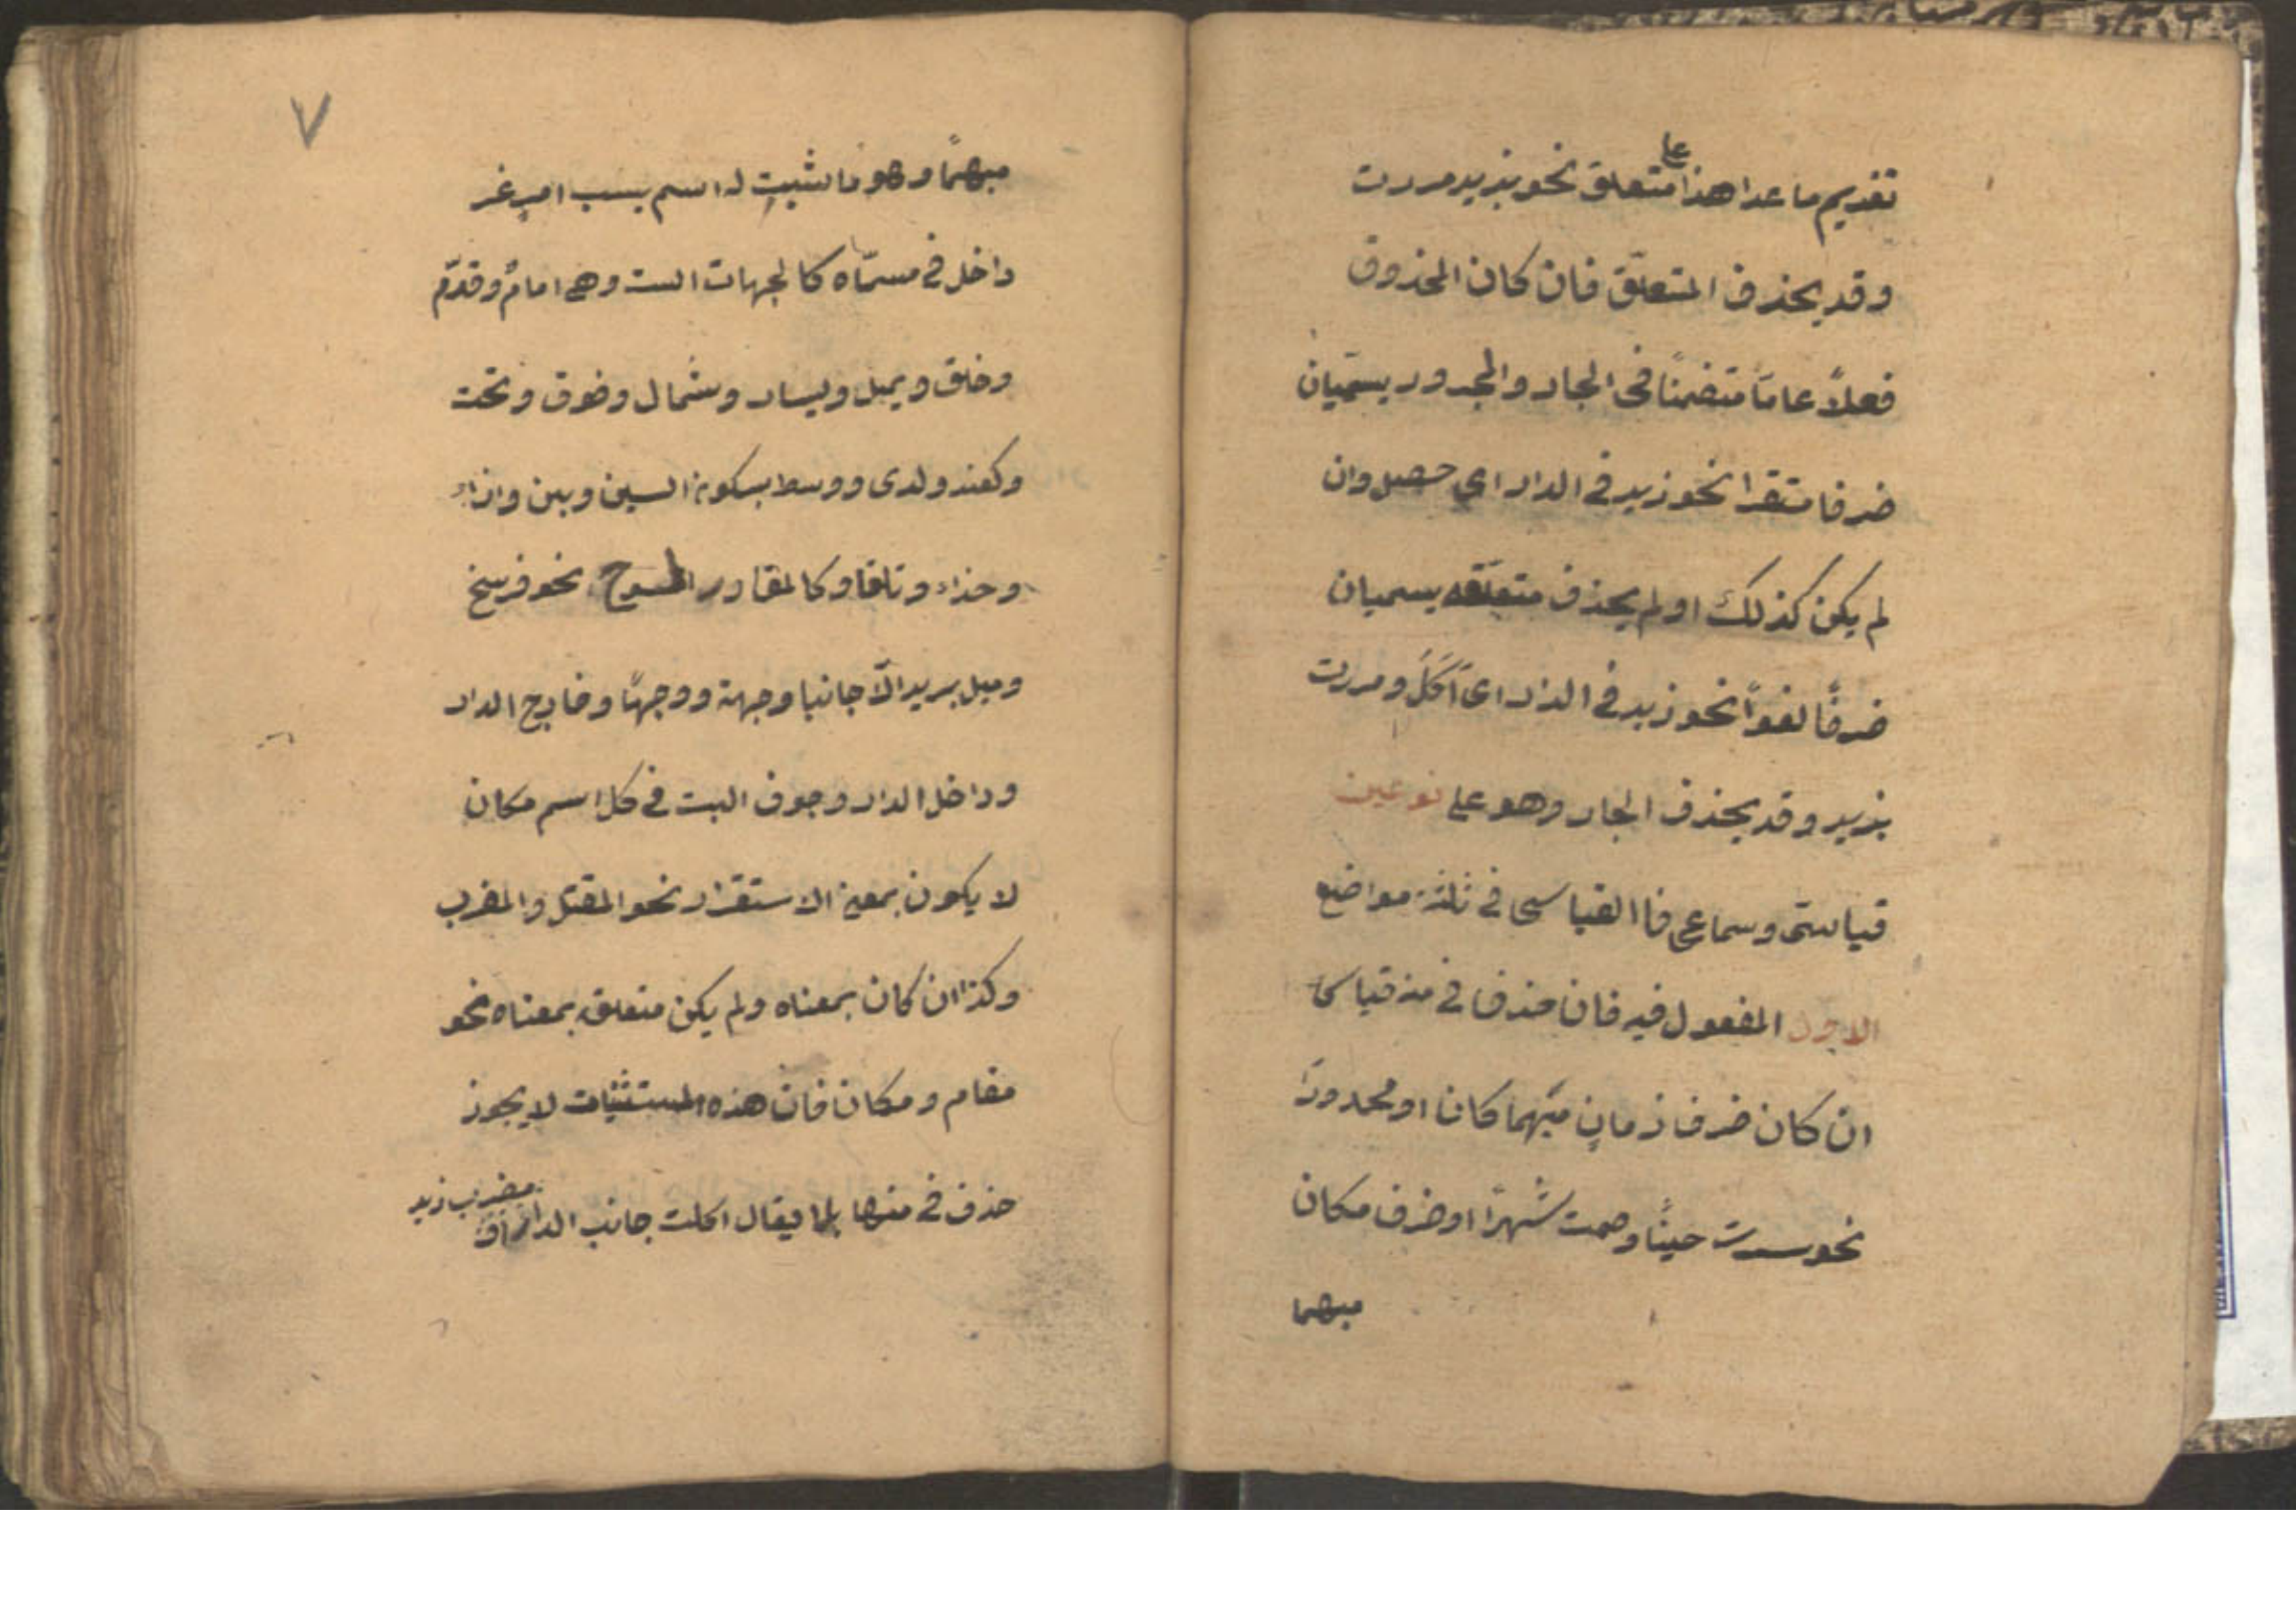 تقديم ما عدا هذا على متعلق نحو بزيد مررت
وقد يحذف المتعلّق فان كان المحذوف
فعلاً عامّاً متضمنًا فى الجار والمجرور يسميّان
ضرفا مستقرا نحو زيد فى الدار اي حصل وان
لم يكن كذلك او لم يحذف متعلّقه يسميان
ضرفًا لغوًا نحو زيد فى الدار اى اَكَلَ ومررت
بزيد وقد يحذف الجار وهو على نوعين
قياسىّ وسماعى فا القياسى فى ثلثة مواضع
الاول المفعول فيه فان حذف فى منه قياسى
ان كان ضرف زمانٍ مبهما كان او محدودًا
نحو سرت حينًا وصمت شهرًا او ضرف مكان
مبهما
٧
مبهمًا وهو ما ثبت له اسم بسبب امرٍ غير
داخل فى مسمّاه كالجهات الست وهى امامٌ وقدّم
وخلق ويمبل ويسار وشمال وفوق وتحت
وكعند ولدى ووسط بسكون السين وبين وازاء
وحذاء وتلقا وكالمقادر المسوح نحو فرسخ
وميل بريد الّا جانبا وجهة ووجهًا وخارج الدار
وداخل الدار وجوف البيت فى كل اسم مكان
لا يكون بمعنى الاستقرار نحو المقتل والمضرب
وكذا ان كان بمعناه ولم يكن متعلقه بمعناه نحو
مقام ومكان فان هذه المستثنيات لا يجوز
حذف فى منها يقال اكلت جانب الدار مضرب زيد